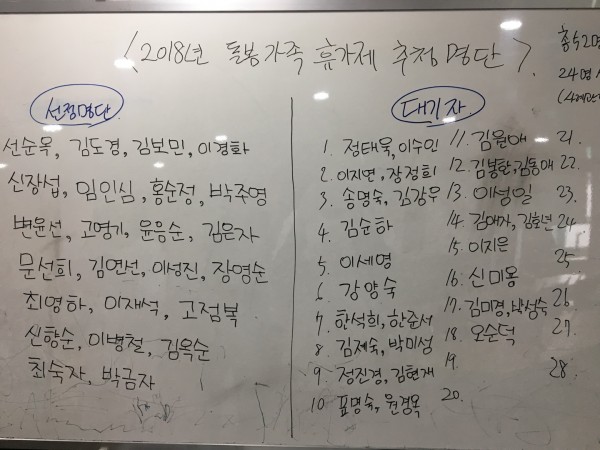 <2018년 돌봄가족 휴가제 추첨 명단>
총 수 2명
24명
선정명단
선순옥, 김도경, 김보민, 이경화
신장섭, 임인심, 홍순정, 박주영
변윤선, 고영기, 윤응순, 김은자
문선희, 김연선, 이성진, 장영순
최영하, 이재석, 고점복
신항순, 이병철, 김옥순
최숙자, 박금자
대기자
1. 정태욱, 이수인
2. 이지연, 장정희
3. 송명숙, 김강우
4. 김순하
5. 이세영
6. 강양숙
7. 한석희, 한준서
8. 김제숙, 박미성
9. 정진경, 김현재
10. 표명숙, 원경옥
11. 김월애
12. 김봉탄, 김동애
13. 이성일
14. 김애자, 김효년
15. 이지은
16. 신미옹
17. 김미경, 박성숙
18. 오순덕
19.
20.
21.
22.
23.
24
25.
26.
27.
28.